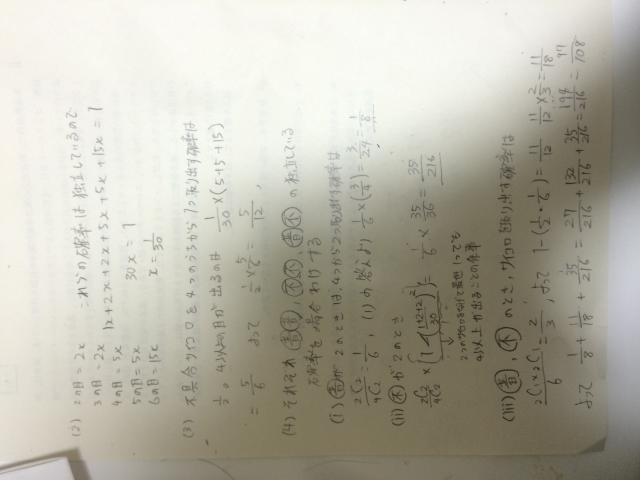 (2) 2の目 = 2x これらの確率は独立しているので
3の目 = 2x 1x+2x+2x+5x+5x+15x = 1
4の目 = 5x
5の目 = 5x 30x = 1
6の目 = 15x x = 1/30
(3) 不具合サイコロを4つのうちから1つ取り出す確率は
1/2。4以上の目が出るのは 1/30 × (5+5+15)
= 5/6 よって 1/2 × 5/6 = 5/12,
(4) それぞれ 普普, 不不, 普不 の独立している
確率を場合わけする
(i) 普が2のときは、4つから2つ取り出す確率は
2C2/4C2 = 1/6, (1)の答より 1/6 × (3/4) = 3/24 = 1/8
(ii) 不が2のとき
2C2/4C2 × {1-((1+2+2)/30)²} = 1/6 × 35/36 = 35/216
2つのサイコロを
4以上が出ることの
(iii) 普, 不 のとき, サイコロを取り出す確率は
2C1×2C1/6 = 2/3, よって 1-(1/2 × 1/6) = 11/12 11/12 × 2/3 = 11/18
よって 1/8 + 11/18 + 35/216 = 27/216 + 132/216 + 35/216 = 194/216 = 97/108